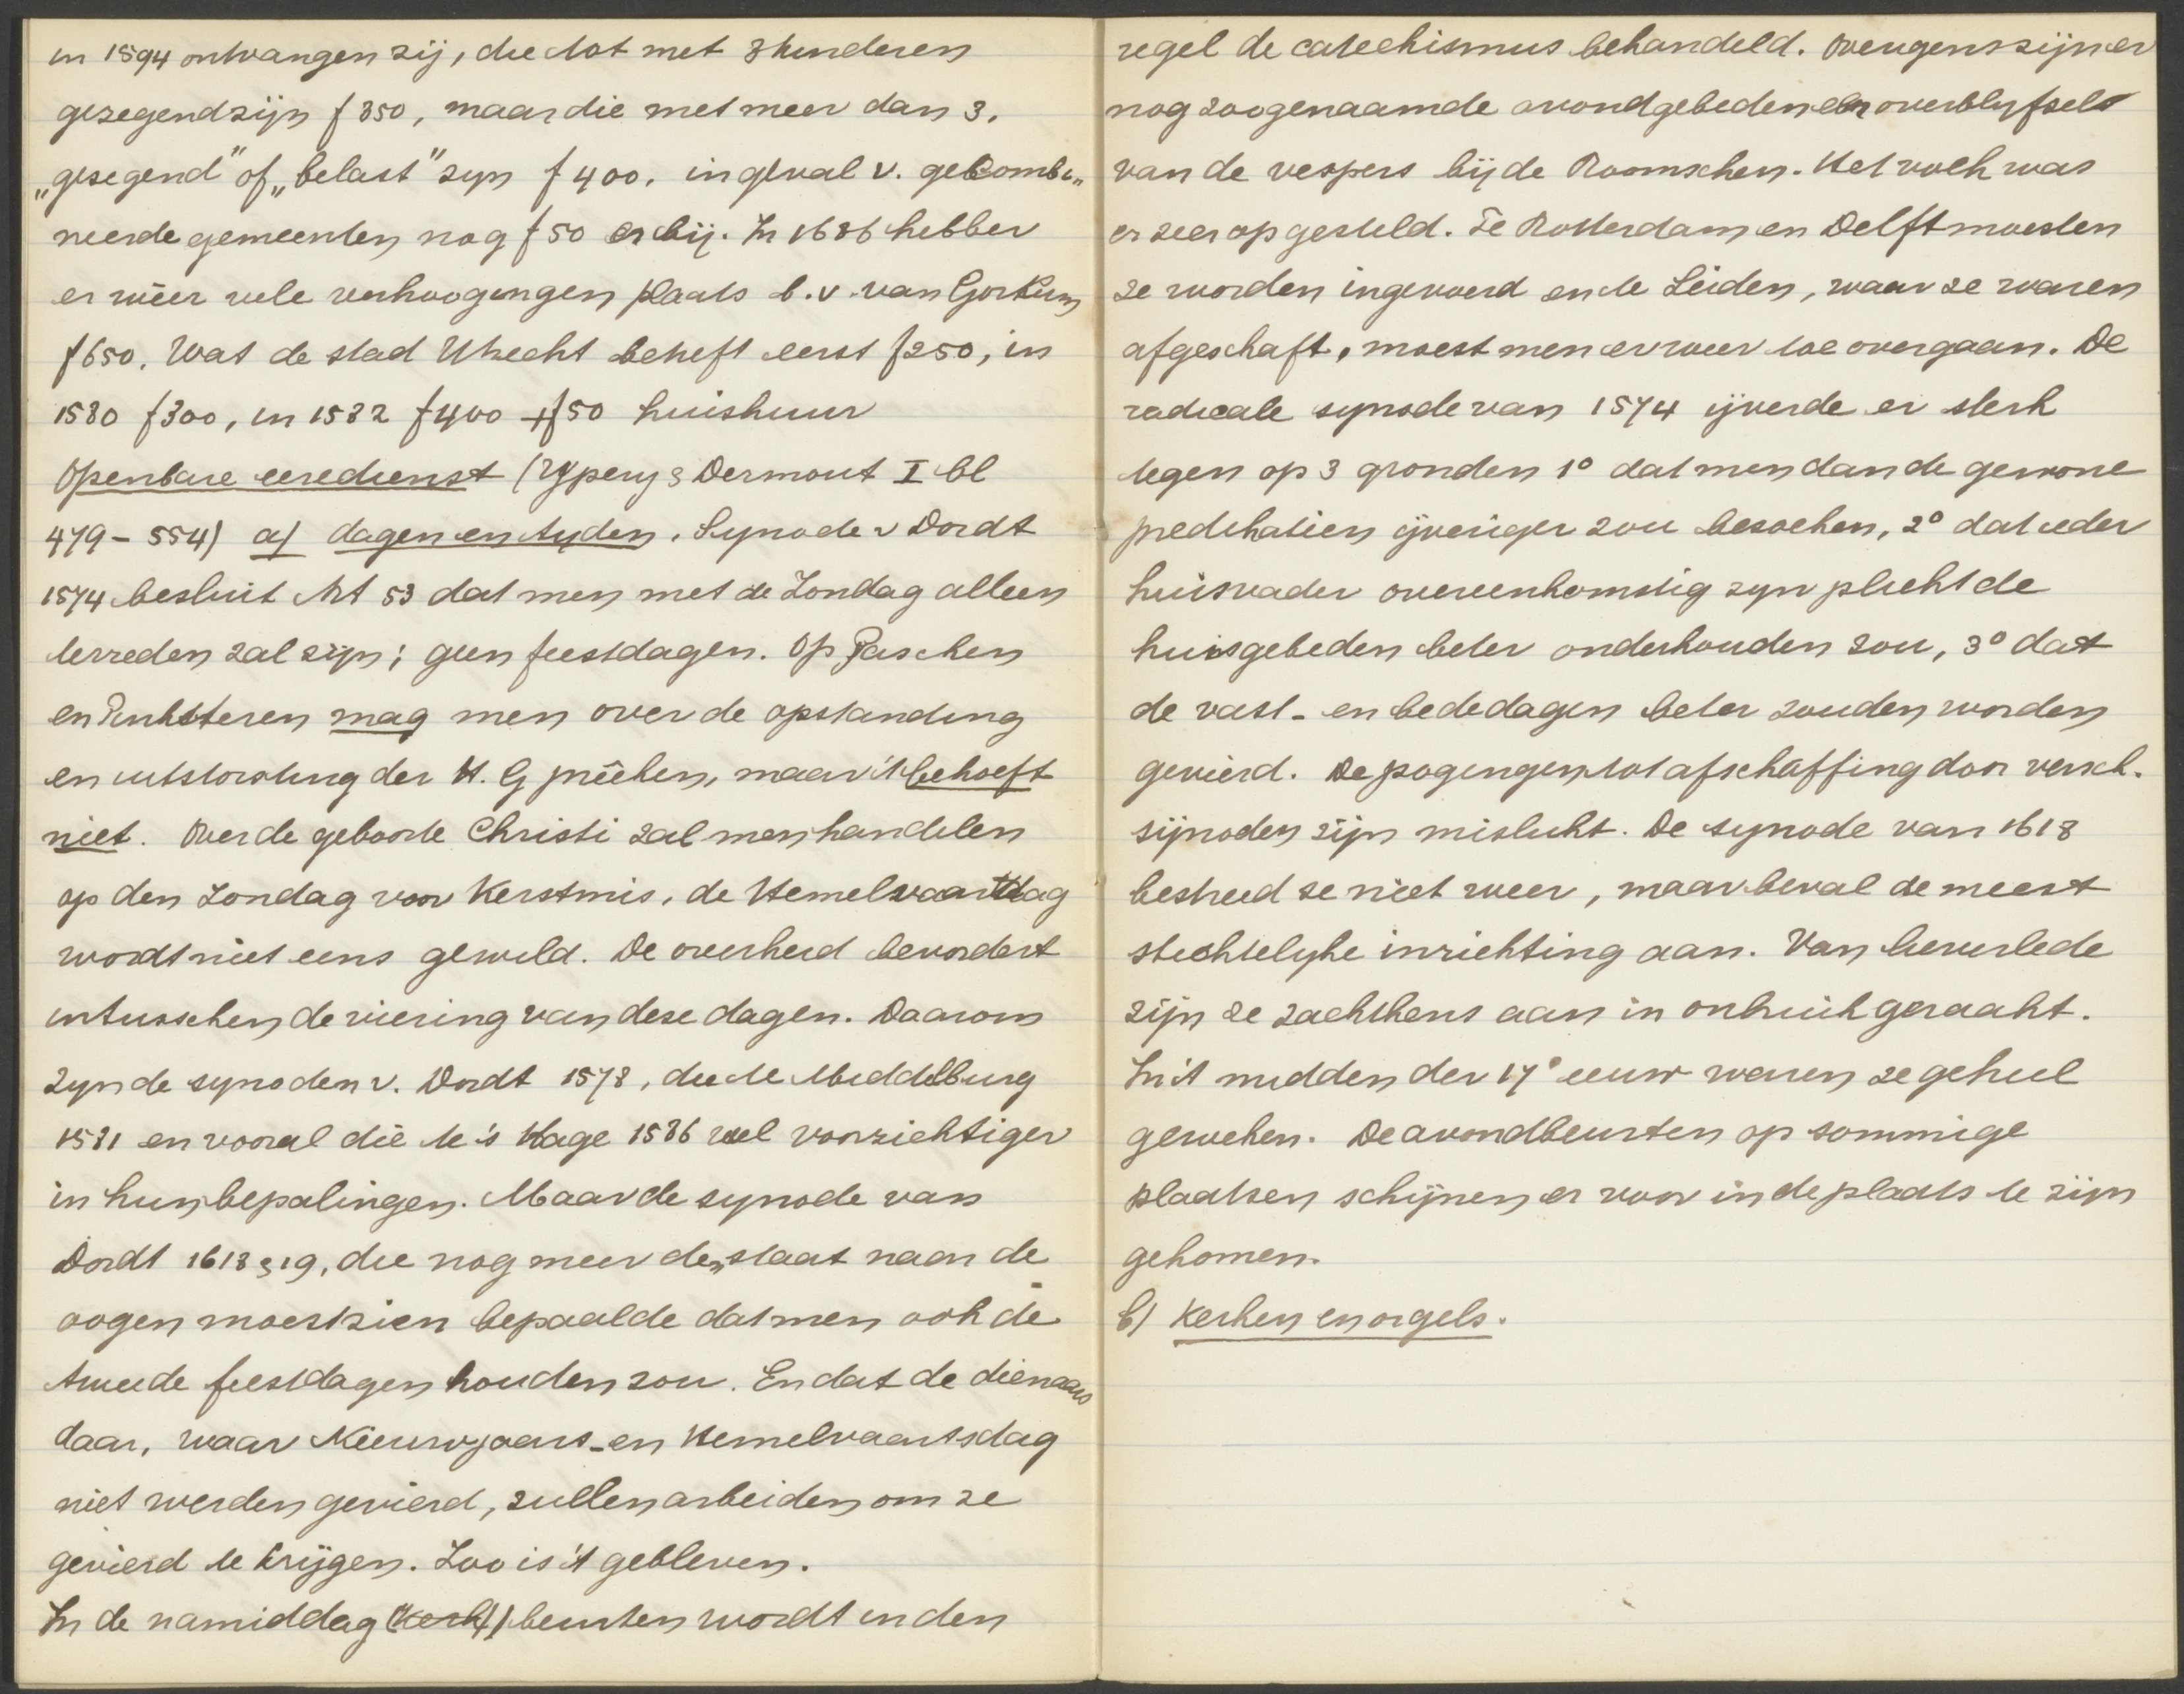 in 1594 ontvangen zij, die tot met 3 kinderen
gezegend zijn f 350, maar die met meer dan 3,
„gezegend" of „belast" zyn f 400. in geval v. gecombi„
neerde gemeenten nog f 50 er bij. In 1686 hebben
er weer vele verhoogingen plaats b.v. van Gorkum
f 650. Wat de stad Utrecht betreft eerst f 250, in
1580 f 300, in 1582 f 400 + f 50 huishuur
Openbare eeredienst (Ypeij & Dermout I bl
479 - 554) a) dagen en tyden. Synode v Dordt
1574 besluit Art 53 dat men met de Zondag alleen
tevreden zal zijn; geen feestdagen. Op Paschen
en Pinksteren mag men over de opstanding
en uitstorting der H. G preêken, maar 't behoeft
niet. Over de geboorte Christi zal men handelen
op den Zondag voor Kerstmis, de Hemelvaartdag
wordt niet eens gewild. De overheid bevordert
intusschen de viering van deze dagen. Daarom
zyn de synoden v. Dordt 1578, die te Middelburg
1581 en vooral die te 's Hage 1586 veel voorzichtiger
in hun bepalingen. Maar de synode van
Dordt 1618 & 19, die nog meer de„ staat naar de
oogen moest zien bepaalde dat men ook de
tweede feestdagen houden zou. En dat de dienaars
daar, waar Nieuwjaars- en Hemelvaartsdag
niet werden gevierd, zullen arbeiden om ze
gevierd te krijgen. Zoo is 't gebleven.
In de namiddag (kerk) beurten wordt in den
regel de catechismus behandeld. Overigens zijn er
nog zoogenaamde avondgebeden als overblyfsels
van de vespers bij de Roomschen. Het volk was
er zeer op gesteld. Te Rotterdam en Delft moesten
ze worden ingevoerd en te Leiden, waar ze waren
afgeschaft, moest men er weer toe overgaan. De
radicale synode van 1574 ijverde er sterk
tegen op 3 gronden 1° dat men dan de gewone
predikatien ijveriger zou bezoeken, 2° dat ieder
huisvader overeenkomstig zyn plicht de
huisgebeden beter onderhouden zou, 3° dat
de vast- en bededagen beter zouden worden
gevierd. De pogingen tot afschaffing door versch.
sijnoden zijn mislukt. De synode van 1618
bestreed ze niet weer, maar beval de meest
stichtelyke inrichting aan. Van lieverlede
zijn ze zachtkens aan in onbruik geraakt.
In 't midden der 17e eeuw waren ze geheel
geweken. De avondbeurten op sommige
plaatsen schijnen er voor in de plaats te zijn
gekomen.
b) Kerken en orgels.